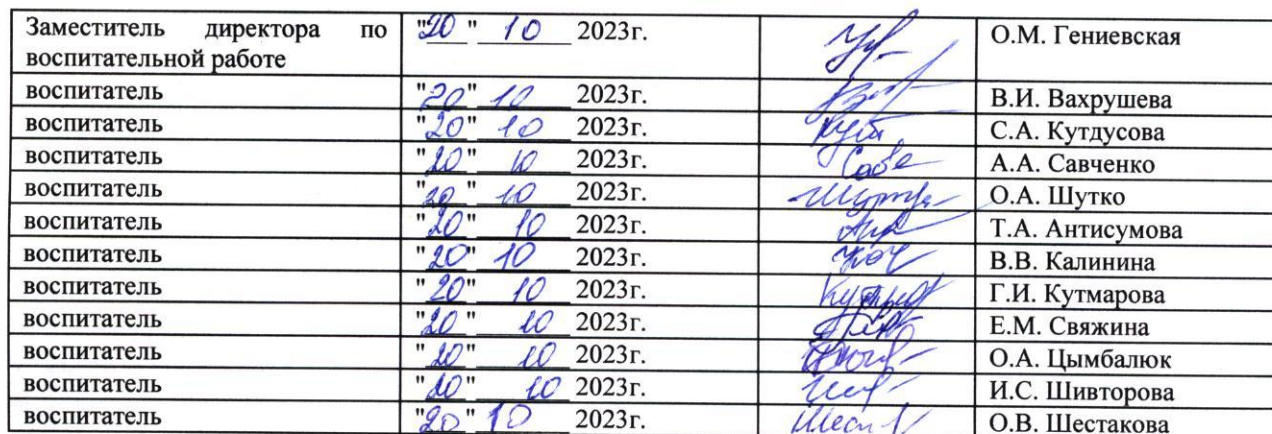 Заместитель директора по "20" 10 2023г. О.М. Гениевская
воспитательной работе
воспитатель "20" 10 2023г. В.И. Вахрушева
воспитатель "20" 10 2023г. С.А. Кутдусова
воспитатель "20" 10 2023г. А.А. Савченко
воспитатель "20" 10 2023г. О.А. Шутко
воспитатель "20" 10 2023г. Т.А. Антисумова
воспитатель "20" 10 2023г. В.В. Калинина
воспитатель "20" 10 2023г. Г.И. Кутмарова
воспитатель "20" 10 2023г. Е.М. Свяжина
воспитатель "20" 10 2023г. О.А. Цымбалюк
воспитатель "20" 10 2023г. И.С. Шивторова
воспитатель "20" 10 2023г. О.В. Шестакова